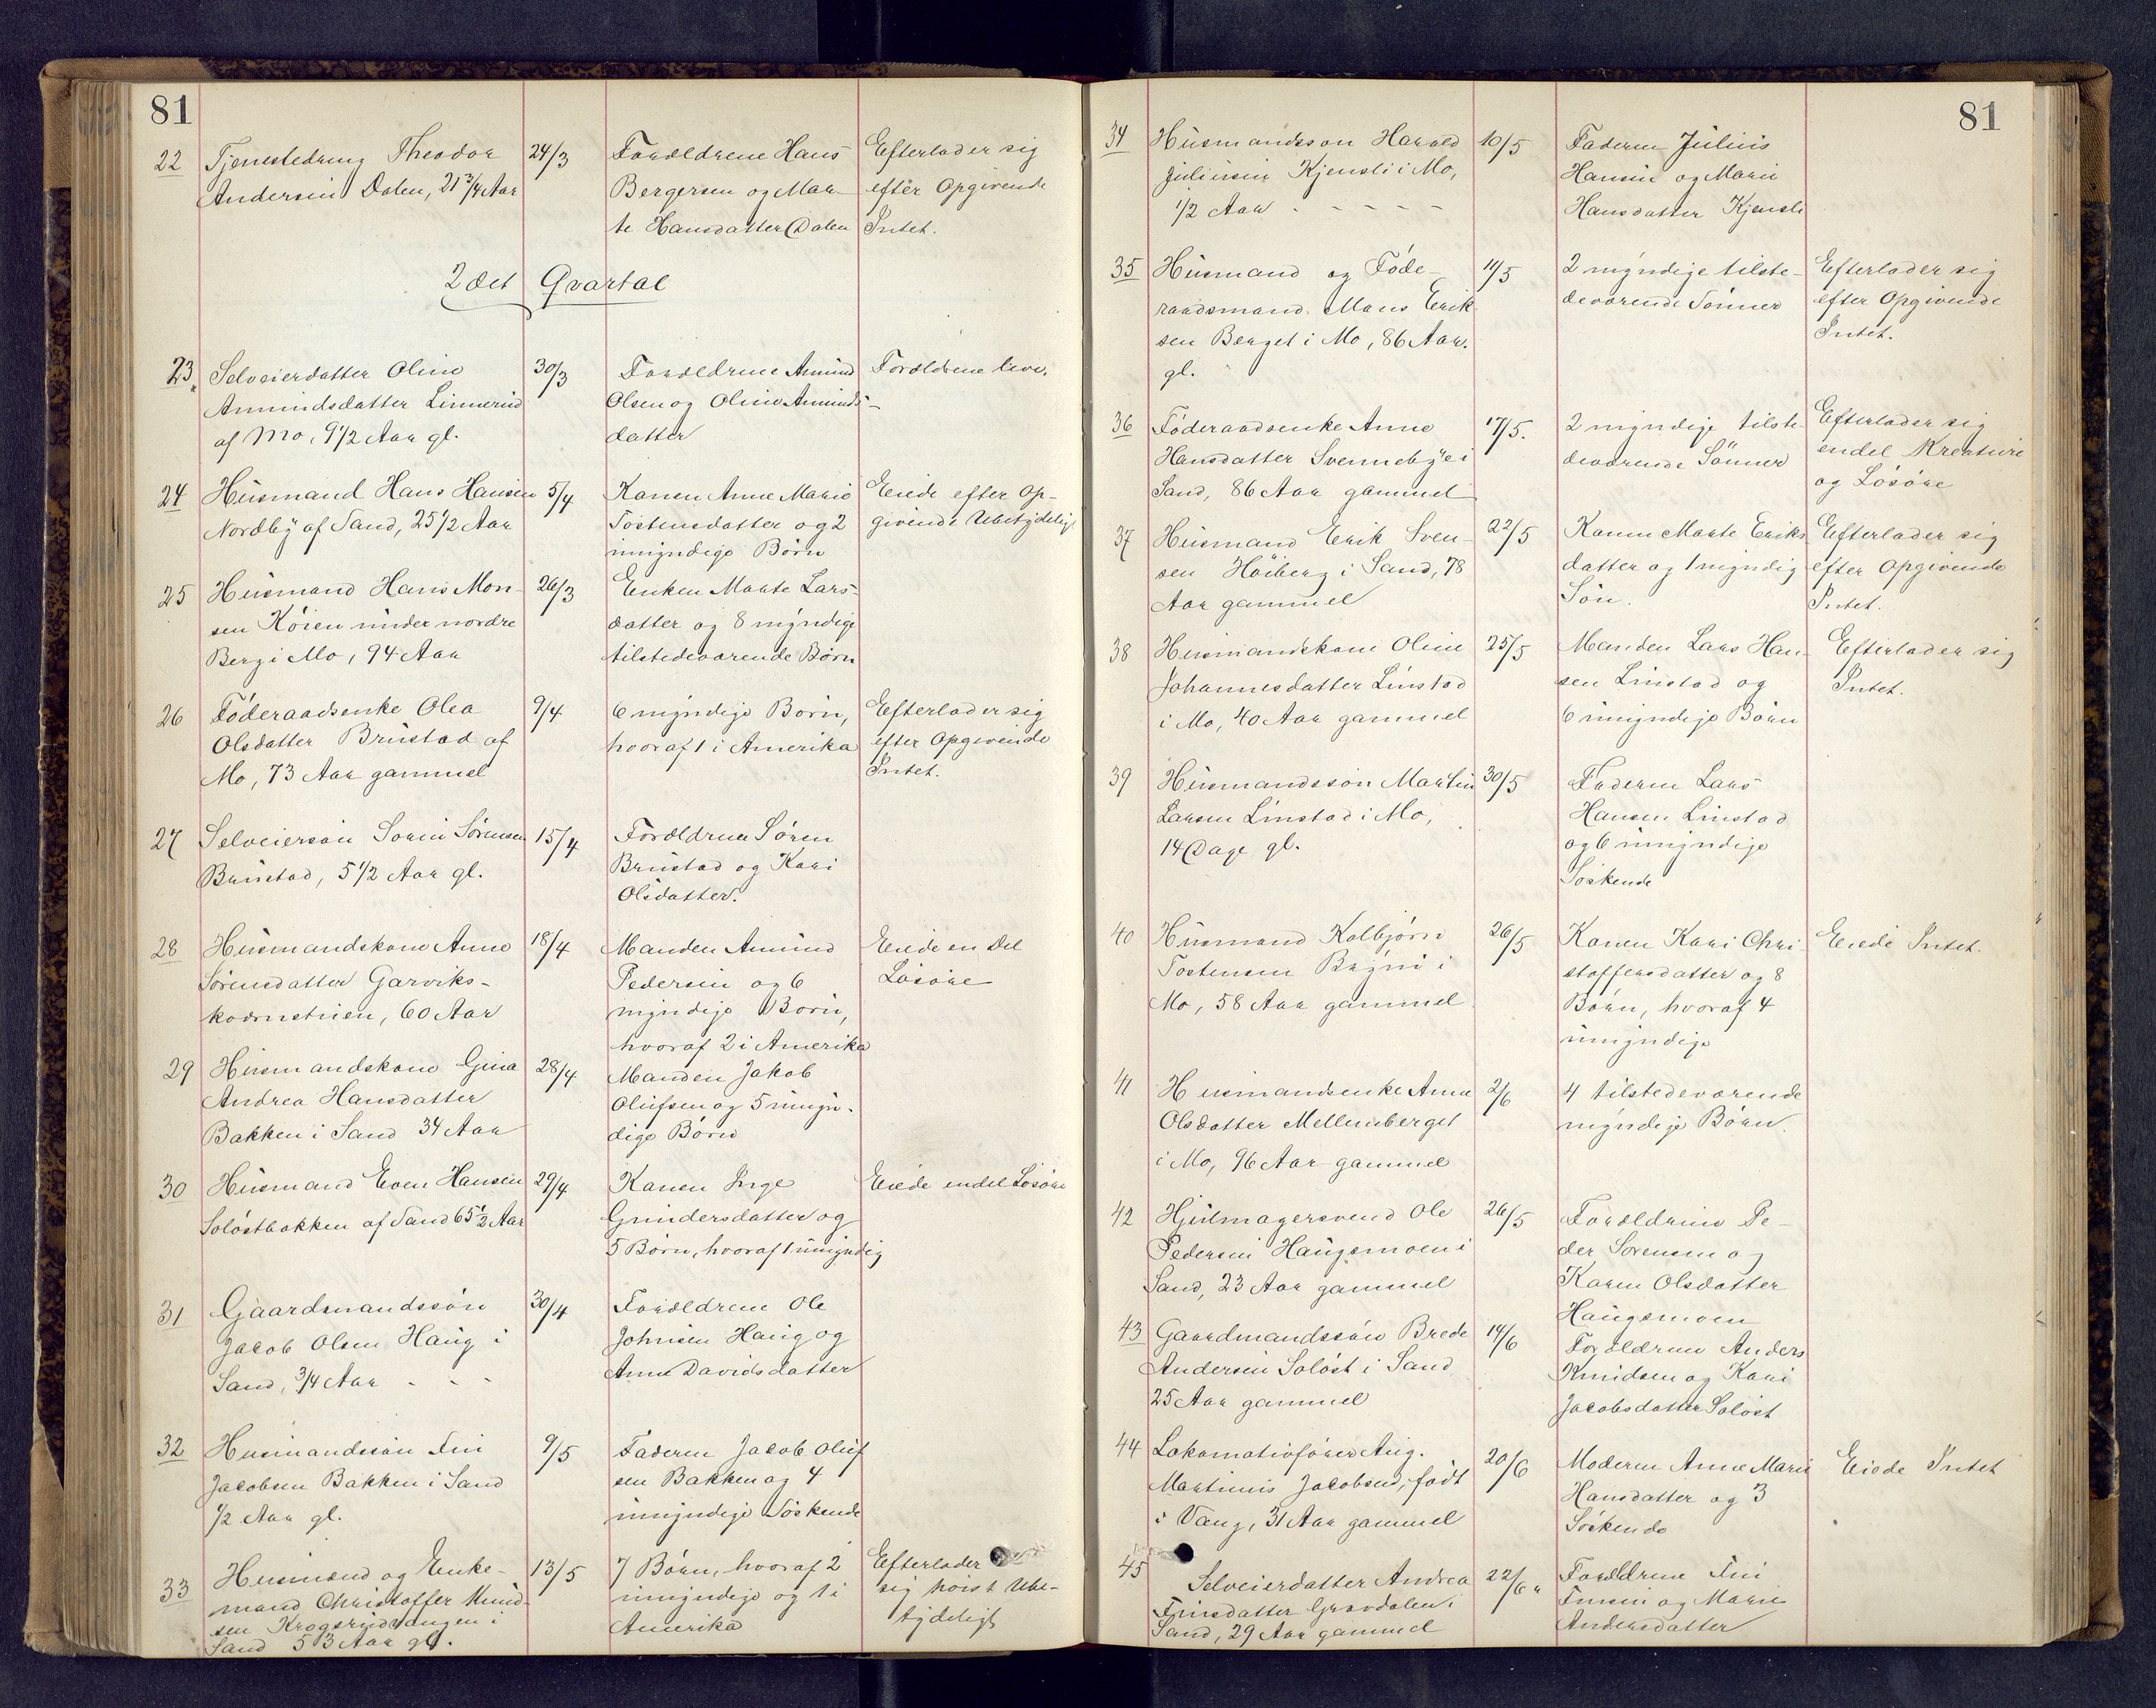 81
22 Tjenestedreng Theodor 24/3 Forældrene Hans Efterlader sig
Andersen Dalen, 21 3/4 Aar Bergersen og Mar- efter Opgivende
te Hansdatter Dalen Intet.
2det Qvartal
23 Selveierdatter Oline 30/3 Forældrene Amund Forældrene leve.
Amundsdatter Linnerud Olsen og Oline Amunds-
af Mo, 9 1/2 Aar gl. datter
24 Husmand Hans Hansen 5/4 Konen Anne Marie Eiede efter Op-
Nordby af Sand, 25 1/2 Aar Tostensdatter og 2 givende Ubetydeligt
umyndige Børn
25 Husmand Hans Mon- 26/3 Enken Marte Lars-
sen Koien under nordre datter og 8 myndige
Berg i Mo, 94 Aar tilstedeværende Børn
26 Føderaadsenke Olea 9/4 6 myndige Børn, Efterlader sig
Olsdatter Brustad af hvoraf 1 i Amerika efter Opgivende
Mo, 73 Aar gammel Intet.
27 Selveiersøn Soren Sørensen 15/4 Forældrene Søren
Brustad, 5 1/2 Aar gl. Brustad og Kari
Olsdatter.
28 Husmandskone Anne 18/4 Manden Amund Eiede en Del
Sørensdatter Garviks- Pedersen og 6 Løsøre
kværnstuen, 60 Aar myndige Børn,
hvoraf 2 i Amerika
29 Husmandskone Gina 28/4 Manden Jakob
Andrea Hansdatter Olufsen og 5 umyn-
Bakken i Sand 34 Aar dige Børn
30 Husmand Even Hansen 29/4 Konen Inge Eiede endel Løsøre
Soløstbakken af Sand 65 1/2 Aar Gundersdatter og
5 Børn, hvoraf 1 umyndig
31 Gaardmandssøn 30/4 Forældrene Ole
Jacob Olsen Haug i Johnsen Haug og
Sand, 3/4 Aar - - - Anne Davidsdatter
32 Husmandssøn Fin 9/5 Faderen Jacob Oluf
Jacobsen Bakken i Sand sen Bakken og 4
1/2 Aar gl. umyndige Søskende
33 Husmand og Enke- 13/5 7 Børn, hvoraf 2 Efterlader
mand Christoffer Knud- umyndige og 1 i sig høist Ube-
sen Krogsrudvangen i Amerika tydeligt
Sand 53 Aar gl.
81
34 Husmandssøn Harald 10/5 Faderen Julius
Juliusen Kjensli i Mo, Hansen og Marie
1/2 Aar - - - - - Hansdatter Kjensli
35 Husmand og Føde- 11/5 2 myndige tilste- Efterlader sig
raadsmand Mons Erik- deværende Sønner efter Opgivende
sen Berget i Mo, 86 Aar. Intet.
gl.
36 Føderaadsenke Anne 17/5. 2 myndige tilste- Efterlader sig
Hansdatter Svennebye i deværende Sønner endel Kreature
Sand, 86 Aar gammel og Løsøre
37 Husmand Erik Sven- 22/5 Konen Marte Eriks Efterlader sig
sen Høiberg i Sand, 78 datter og 1 myndig efter Opgivende
Aar gammel Søn. Intet.
38 Husmandskone Oline 25/5 Manden Lars Han- Efterlader sig
Johannesdatter Linstad sen Linstad og Intet.
i Mo, 40 Aar gammel 6 umyndige Børn
39 Husmandssøn Martin 30/5 Faderen Lars
Larsen Linstad i Mo, Hansen Linstad
14 Dage gl. og 6 umyndige
Søskende
40 Husmand Kolbjørn 26/5 Konen Kari Chri- Eiede Intet.
Tostensen Brynie i stoffersdatter og 8
Mo, 58 Aar gammel Børn, hvoraf 4
umyndige
41 Husmandsenke Anne 2/6 4 tilstedeværende
Olsdatter Mellumberget myndige Børn.
i Mo, 96 Aar gammel
42 Hjulmagersvend Ole 26/5 Forældrene Pe-
Pedersen Haugsmoen i der Sørensen og
Sand, 23 Aar gammel Karen Olsdatter
Haugsmoen
43 Gaardmandssøn Brede 14/6 Forældrene Anders
Andersen Soløst i Sand Knudsen og Kari
25 Aar gammel Jacobsdatter Soløst
44 Lokomotivfører Aug. 20/6 Moderen Anne Marie Eiede Intet
Martinius Jacobsen, født Hansdatter og 3
i Vang, 31 Aar gammel Søskende
45 Selveierdatter Andrea 22/6 Forældrene Fin
Finsdatter Gravdalen i Finsen og Marie
Sand, 29 Aar gammel Andersdatter